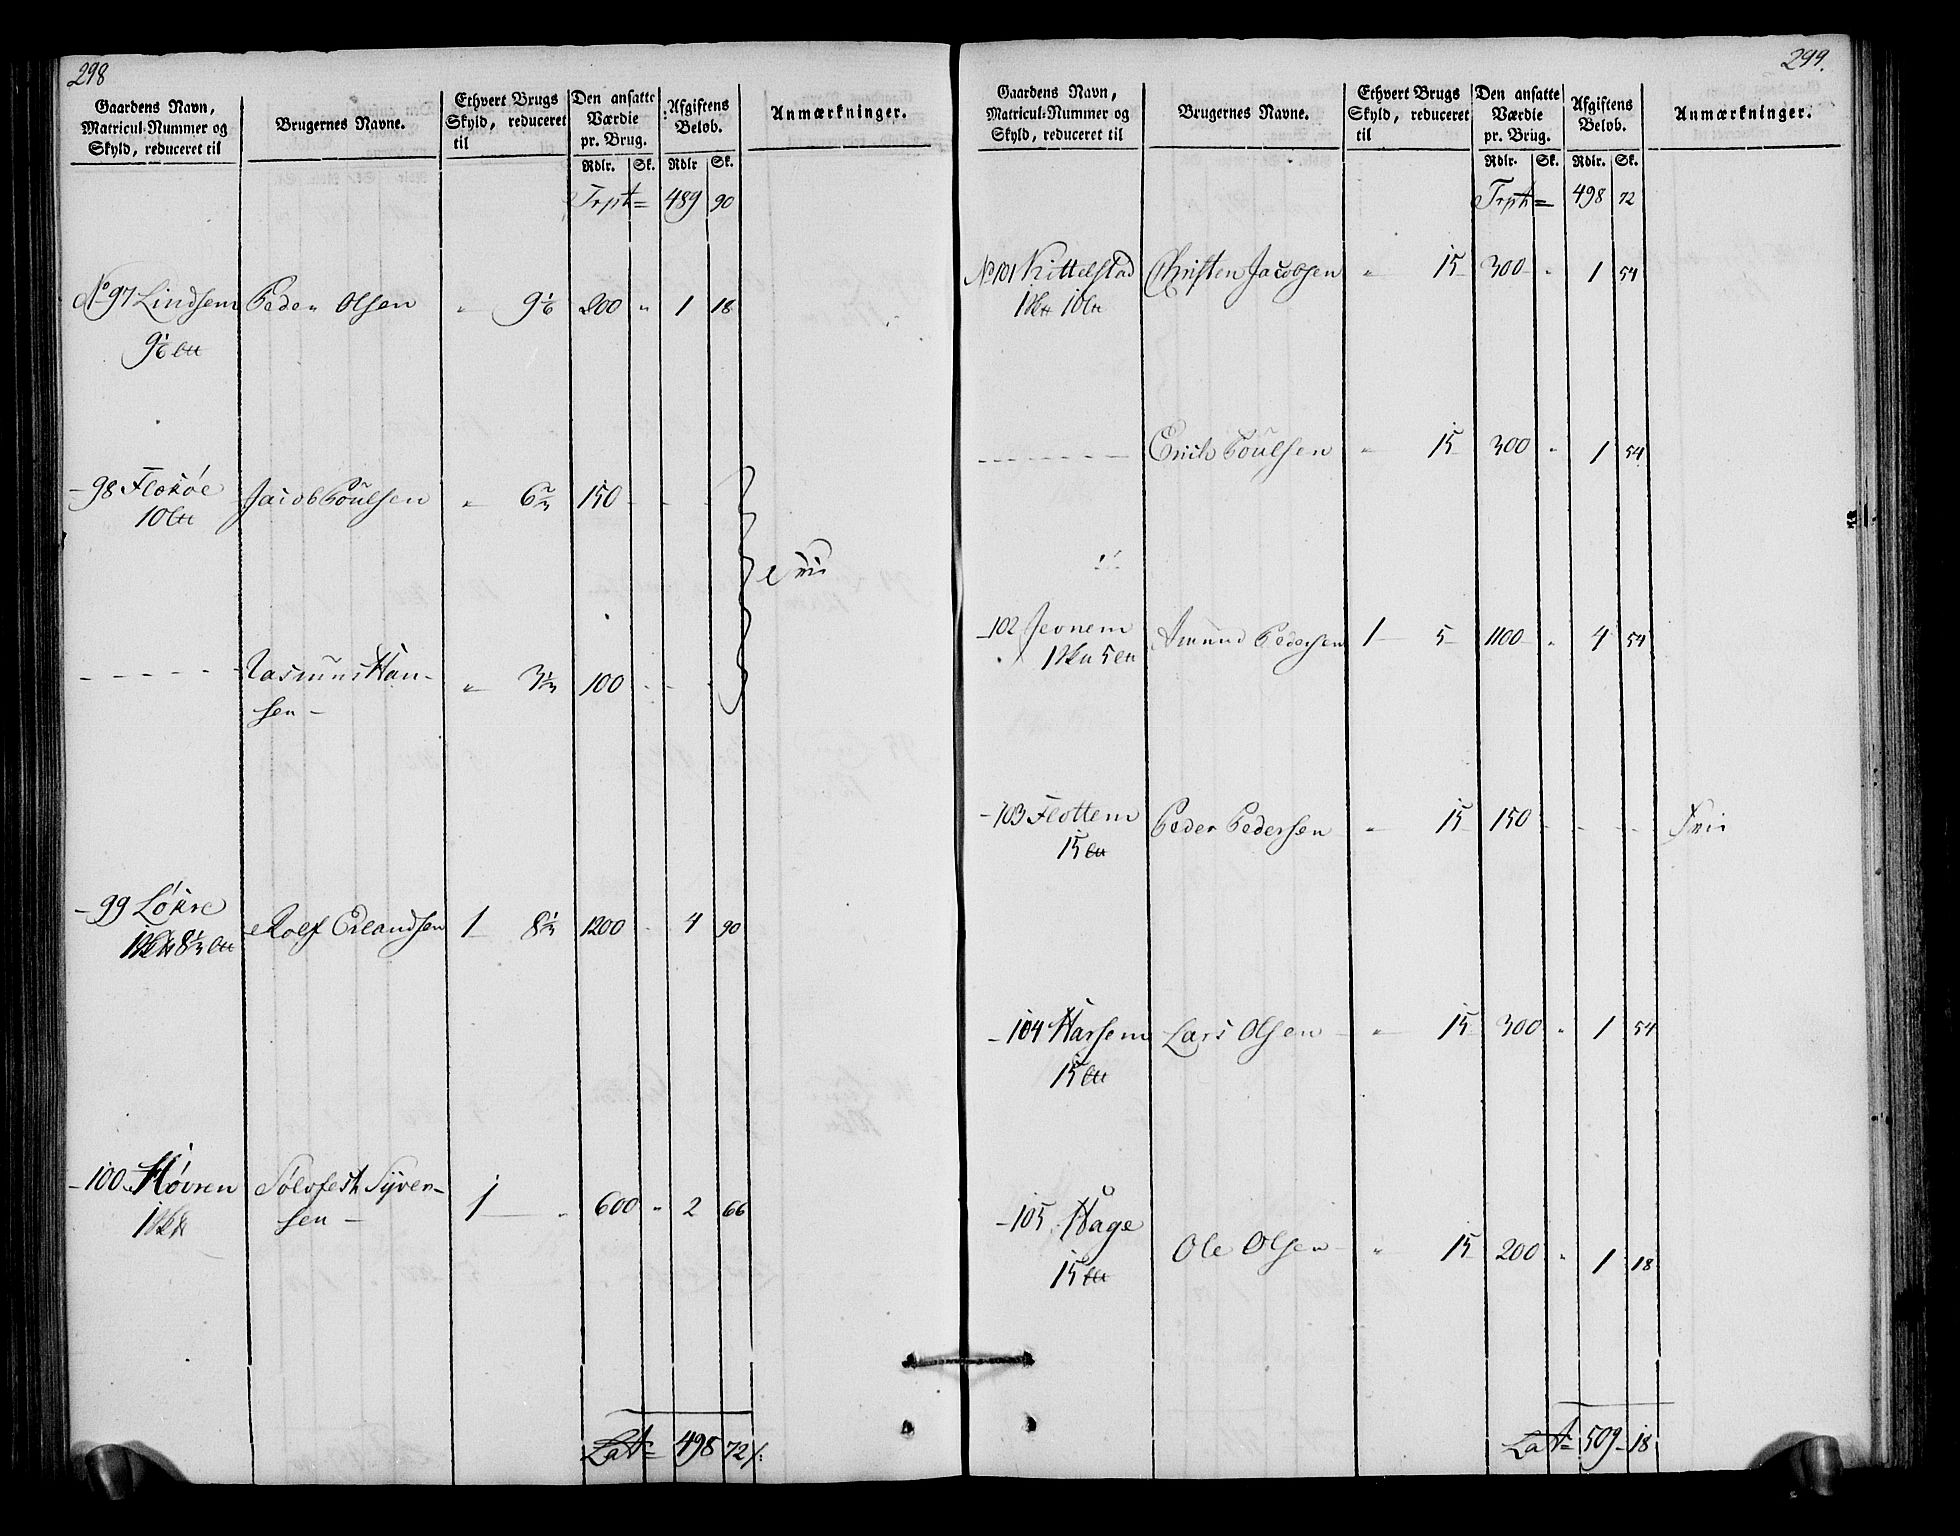 298
Gaardens Navn, Matricul-Nummer og Skyld, reduceret til | Brugernes Navne. | Ethvert Brugs Skyld, reduceret til | Den ansatte Værdie pr. Brug. Rdlr. Sk. | Afgiftens Beløb. Rdlr Sk. | Anmærkninger.
Trpt= 489 90
No 97 Lindsem Peder Olsen " 9 1/6 200 " 1 18
9 1/6 Ltt
- 98 Flokøe Jacob Poulsen " 6 2/3 150 - - -
10 Ltt
Frie
- - - - - Rasmus Han-
sen - " 3 1/3 100 - - -
- 99 Løkre Rolf Erlandsen 1 8 1/3 1200 - 4 90
1 Vtt 8 1/3 Ltt
- 100 Høvren Sølvfest Syver-
sen - 1 " 600 " 2 66
1 Vtt
Lat= 498 72
299.
Gaardens Navn, Matricul-Nummer og Skyld, reduceret til | Brugernes Navne. | Ethvert Brugs Skyld, reduceret til | Den ansatte Værdie pr. Brug. Rdlr. Sk. | Afgiftens Beløb. Rdlr. Sk. | Anmærkninger.
Trpt= 498 72
No 101 Kittelstad Christen Jacobsen " 15 300 " 1 54
1 Vtt 10 Ltt
- - - - - Erich Poulsen " 15 300 " 1 54
- 102 Jevnem Amund Pedersen 1 5 1100 " 4 54
1 Vtt 5 Ltt
- 103 Flottem Peder Pedersen " 15 150 - - - Frie
15 Ltt
- 104 Harsem Lars Olsen " 15 300 " 1 54
15 Ltt
- 105 Hage Ole Olsen " 15 200 " 1 18
15 Ltt
Lat= 509 - 18